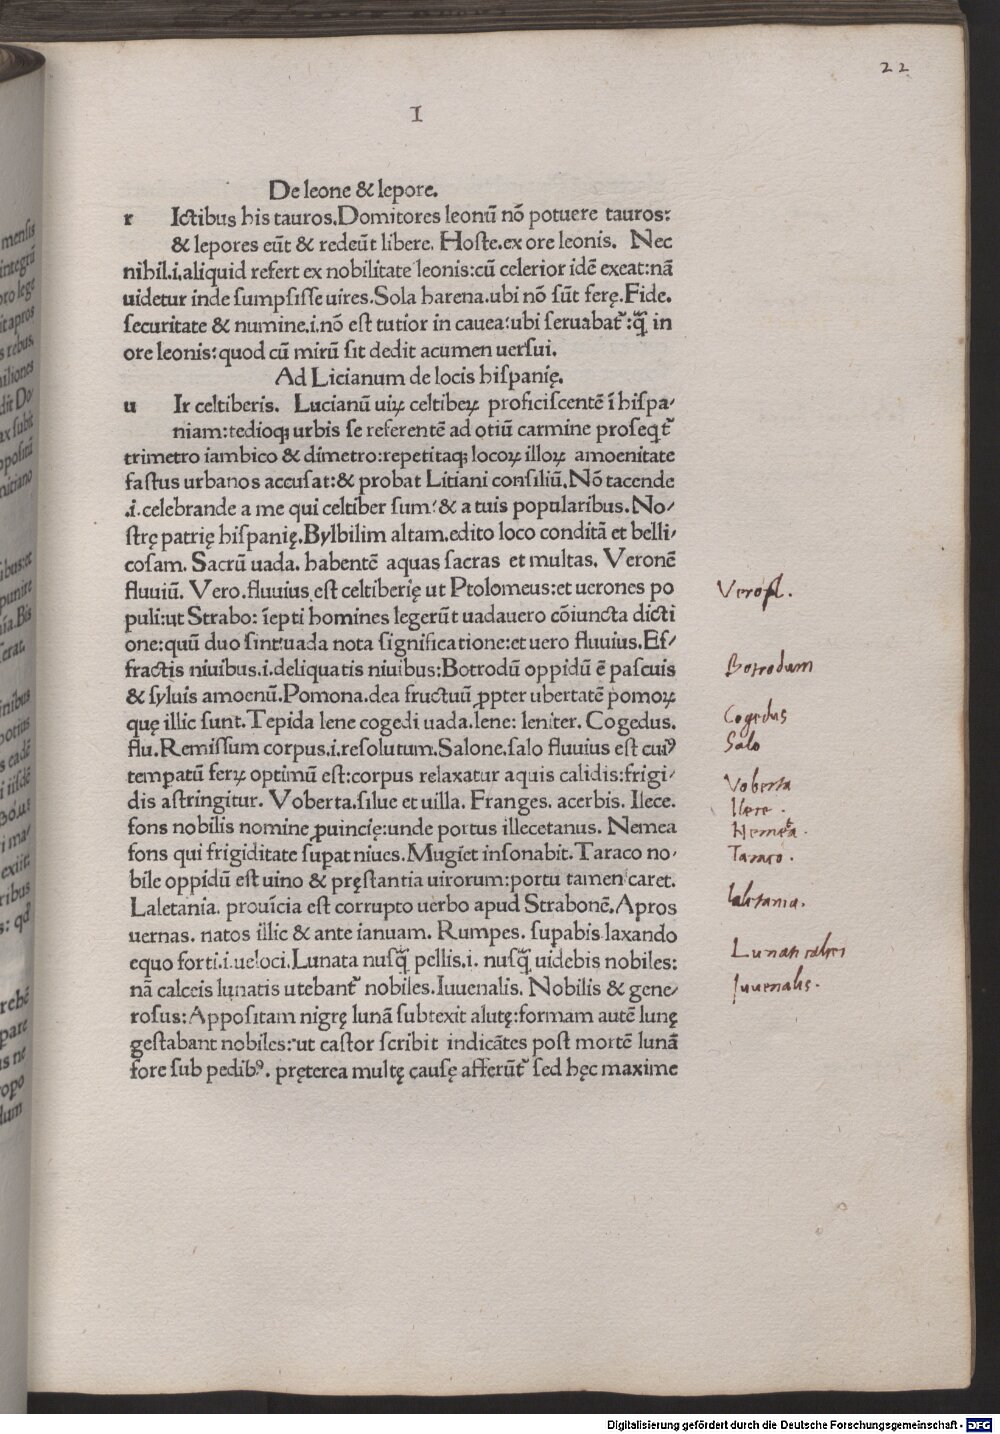 22
I
De leone & lepore.
r Ictibus his tauros.Domitores leonū nō potuere tauros:
& lepores eūt & redeūt libere. Hoste.ex ore leonis. Nec
nihil.i.aliquid refert ex nobilitate leonis:cū celerior idē exeat:nā
uidetur inde sumpsisse uires.Sola harena.ubi nō sūt ferę.Fide.
securitate & numine.i.nō est tutior in cauea:ubi seruabat᷑:q̄ in
ore leonis:quod cū mirū sit dedit acumen uersui.
Ad Licianum de locis hispanię.
u Ir celtiberis. Lucianū uiꝝ celtibeꝝ proficiscentē ī hispa/
niam:tedioqꝫ urbis se referentē ad otiū carmine proseqt᷑
trimetro iambico & dimetro:repetitaqꝫ locoꝝ illoꝝ amoenitate
fastus urbanos accusat:& probat Litiani consiliū.Nō tacende
.i.celebrande a me qui celtiber sum:& a tuis popularibus.No/
strę patrię hispanię.Bylbilim altam.edito loco conditā et belli/
cosam. Sacrū uada. habentē aquas sacras et multas. Veronē
fluuiū. Vero.fluuius est celtiberię ut Ptolomeus:et uerones po
puli:ut Strabo: īepti homines legerūt uadauero cōiuncta dicti
one:quū duo sint:uada nota significatione:et uero fluuius.Ef/
fractis niuibus.i.deliquatis niuibus:Botrodū oppidū ē pascuis
& syluis amoenū.Pomona.dea fructuū ꝓpter ubertatē pomoꝝ
quę illic sunt.Tepida lene cogedi uada.lene: leniter. Cogedus.
flu.Remissum corpus.i.resolutum.Salone.salo fluuius est cuiꝰ
temperatū ferꝝ optimū est:corpus relaxatur aquis calidis:frigi/
dis astringitur. Voberta.silue et uilla. Franges. acerbis. Ilece.
fons nobilis nomine ꝓuincię:unde portus illecetanus. Nemea
fons qui frigiditate supat niues.Mugiet insonabit.Taraco no/
bile oppidū est uino & pręstantia uirorum:portu tamen caret.
Laletania. prouīcia est corrupto uerbo apud Strabonē.Apros
uernas. natos illic & ante ianuam. Rumpes. supabis laxando
equo forti.i.ueloci.Lunata nusq̄ pellis.i. nusq̄ uidebis nobiles:
nā calceis lunatis utebant᷑ nobiles.Iuuenalis. Nobilis & gene/
rosus:Appositam nigrę lunā subtexit alutę:formam autē lunę
gestabant nobiles:ut castor scribit indicātes post mortē lunā
fore sub pedibꝰ. pręterea multę causę afferūt᷑ sed hęc maxime
Vero fl.
Botrodum
Cogedus
Salo
Voberta
Ilece .
Nemea .
Taraco .
laletania.
Iuuenalis.
Digitalisierung gefördert durch die Deutsche Forschungsgemeinschaft - DFG